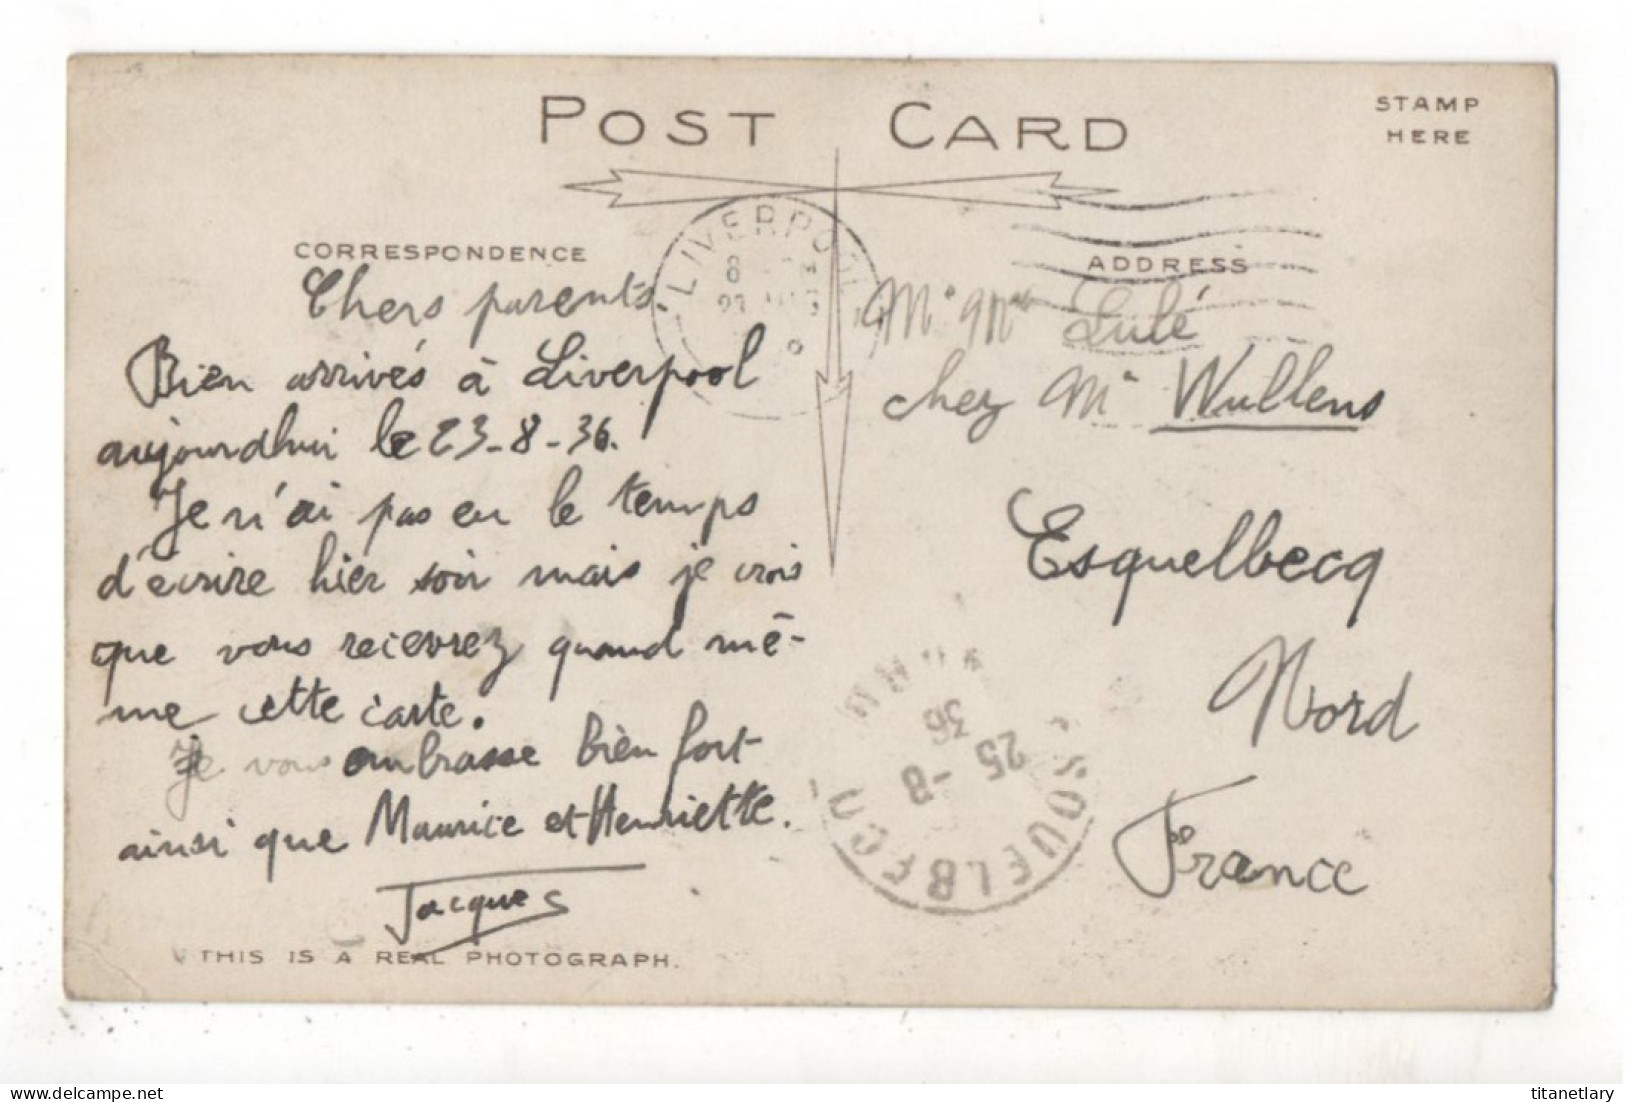 POST CARD
STAMP
HERE
CORRESPONDENCE
ADDRESS
LIVERPOOL
Chers parents.
Bien arrivés à Liverpool
aujourdhui le 23-8-36.
Je n'ai pas eu le temps
d'écrire hier soir mais je crois
que vous recevrez quand mê-
me cette carte.
Je vous embrasse bien fort
ainsi que Maurice et Henriette.
Jacques
THIS IS A REAL PHOTOGRAPH.
Mr Mme Lulé
chez Mr Wullens
Esquelbecq
Nord
France
25 -8
36
ESQUELBECQ
titanetlary